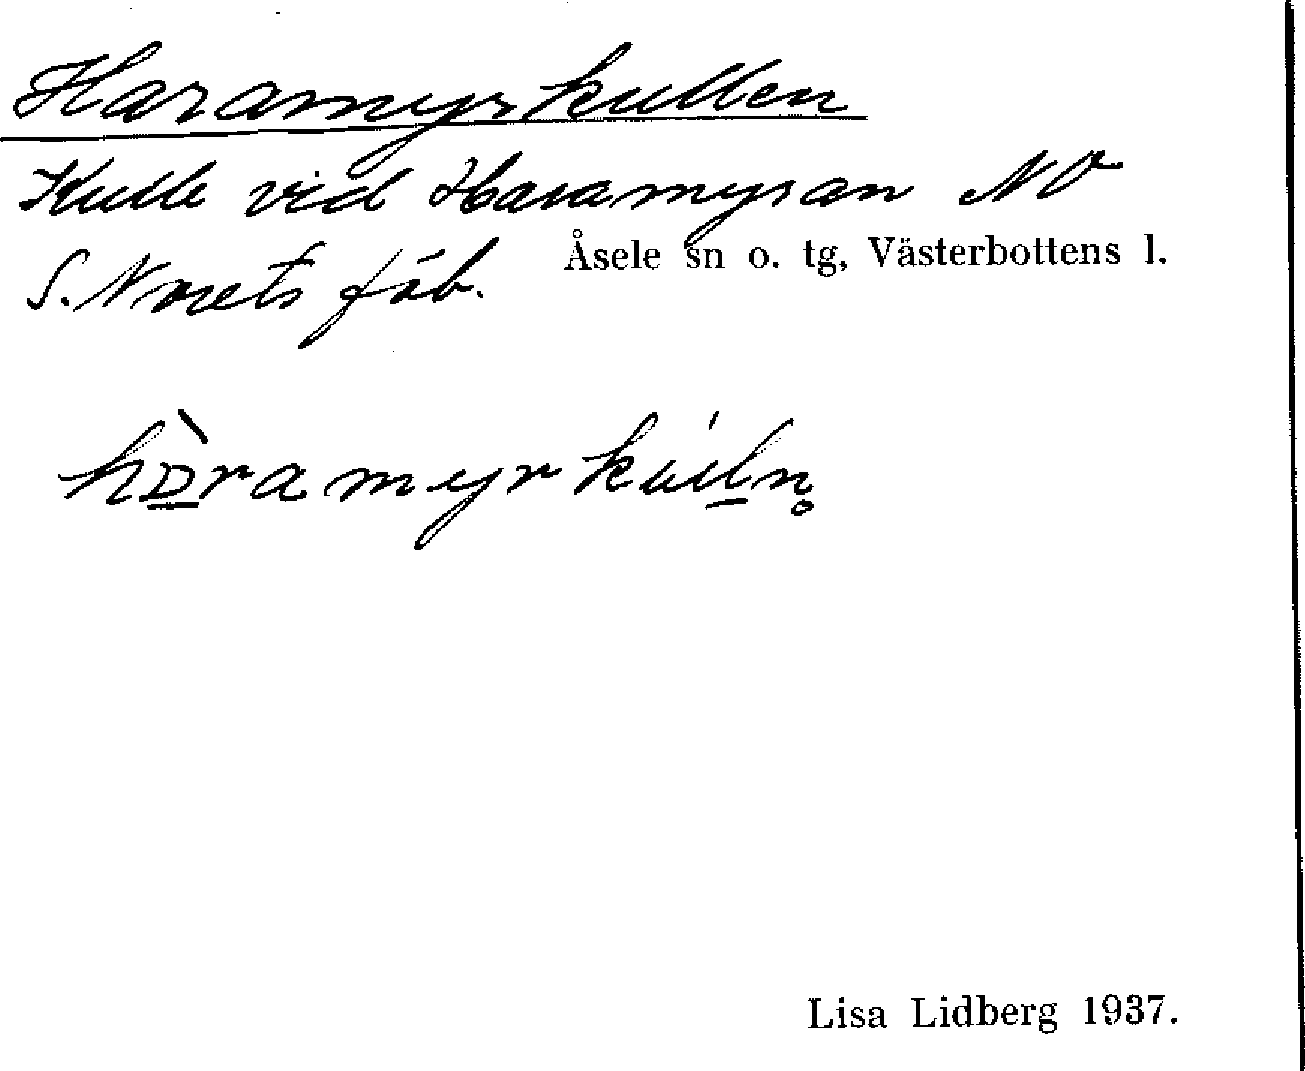 Haramyrkullen
Kulle vid Haramyran NO
S. Norets fäb.
Åsele sn o. tg, Västerbottens l.
hɒ̱̀ramyrkúḻn̥
Lisa Lidberg 1937.